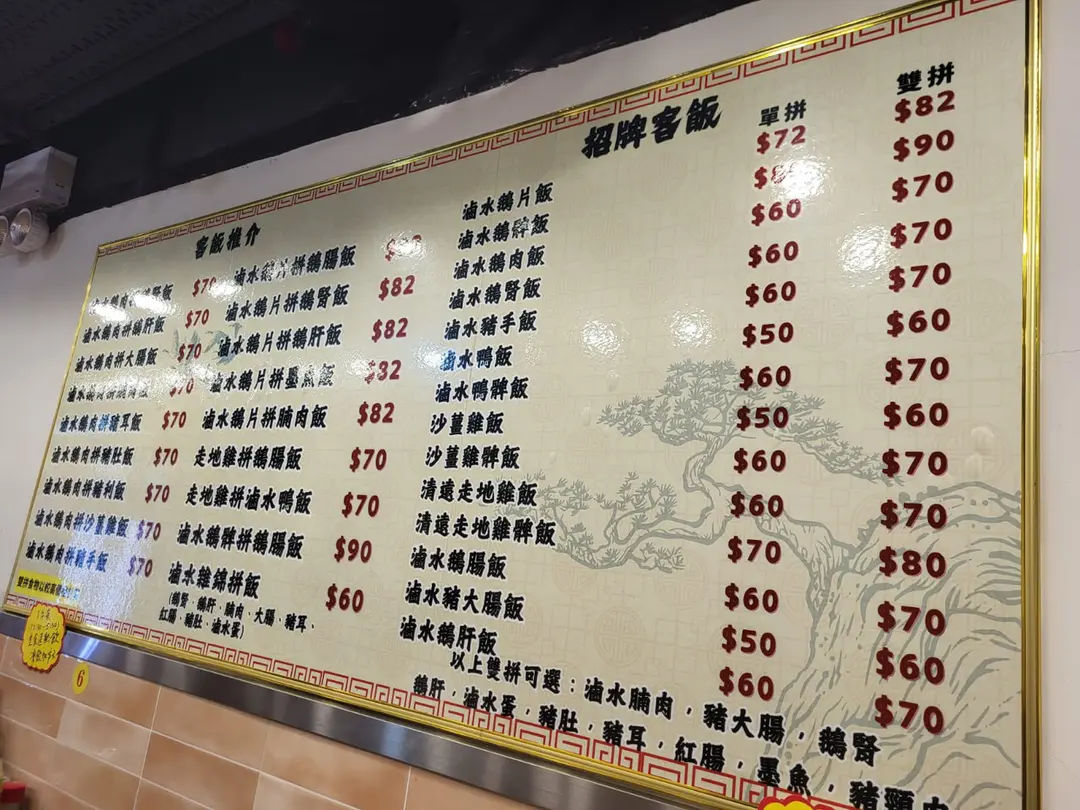 招牌客飯 單拼 雙拼
滷水鵝片飯 $72 $82
滷水鵝髀飯 $90
滷水鵝肉飯 $60 $70
滷水鵝腎飯 $60 $70
滷水豬手飯 $60 $70
滷水鴨飯 $50 $60
滷水鴨髀飯 $60 $70
沙薑雞飯 $50 $60
沙薑雞髀飯 $60 $70
清遠走地雞飯 $60 $70
清遠走地雞髀飯 $70 $80
滷水鵝腸飯 $60 $70
滷水豬大腸飯 $50 $60
滷水鵝肝飯 $60 $70
以上雙拼可選：滷水腩肉，豬大腸，鵝腎
鵝肝，滷水蛋，豬肚，豬耳，紅腸，墨魚，豬頸
客飯推介
滷水鵝肉
滷水鵝肉拼鵝肝飯 $70
滷水鵝肉拼大腸飯 $70
滷水鵝肉 $70
滷水鵝肉拼豬耳飯 $70
滷水鵝肉拼豬肚飯 $70
滷水鵝肉拼豬利飯 $70
滷水鵝肉拼沙薑雞飯 $70
滷水鵝肉拼豬手飯 $70
滷水鵝片拼鵝腸飯
滷水鵝片拼鵝腎飯 $82
滷水鵝片拼鵝肝飯 $82
滷水鵝片拼墨魚飯 $82
滷水鵝片拼腩肉飯 $82
走地雞拼鵝腸飯 $70
走地雞拼滷水鴨飯 $70
滷水鵝髀拼鵝腸飯 $90
滷水雜錦拼飯 $60
(鵝腎、鵝肝、腩肉、大腸、豬耳、
紅腸、豬肚、滷水蛋)
6